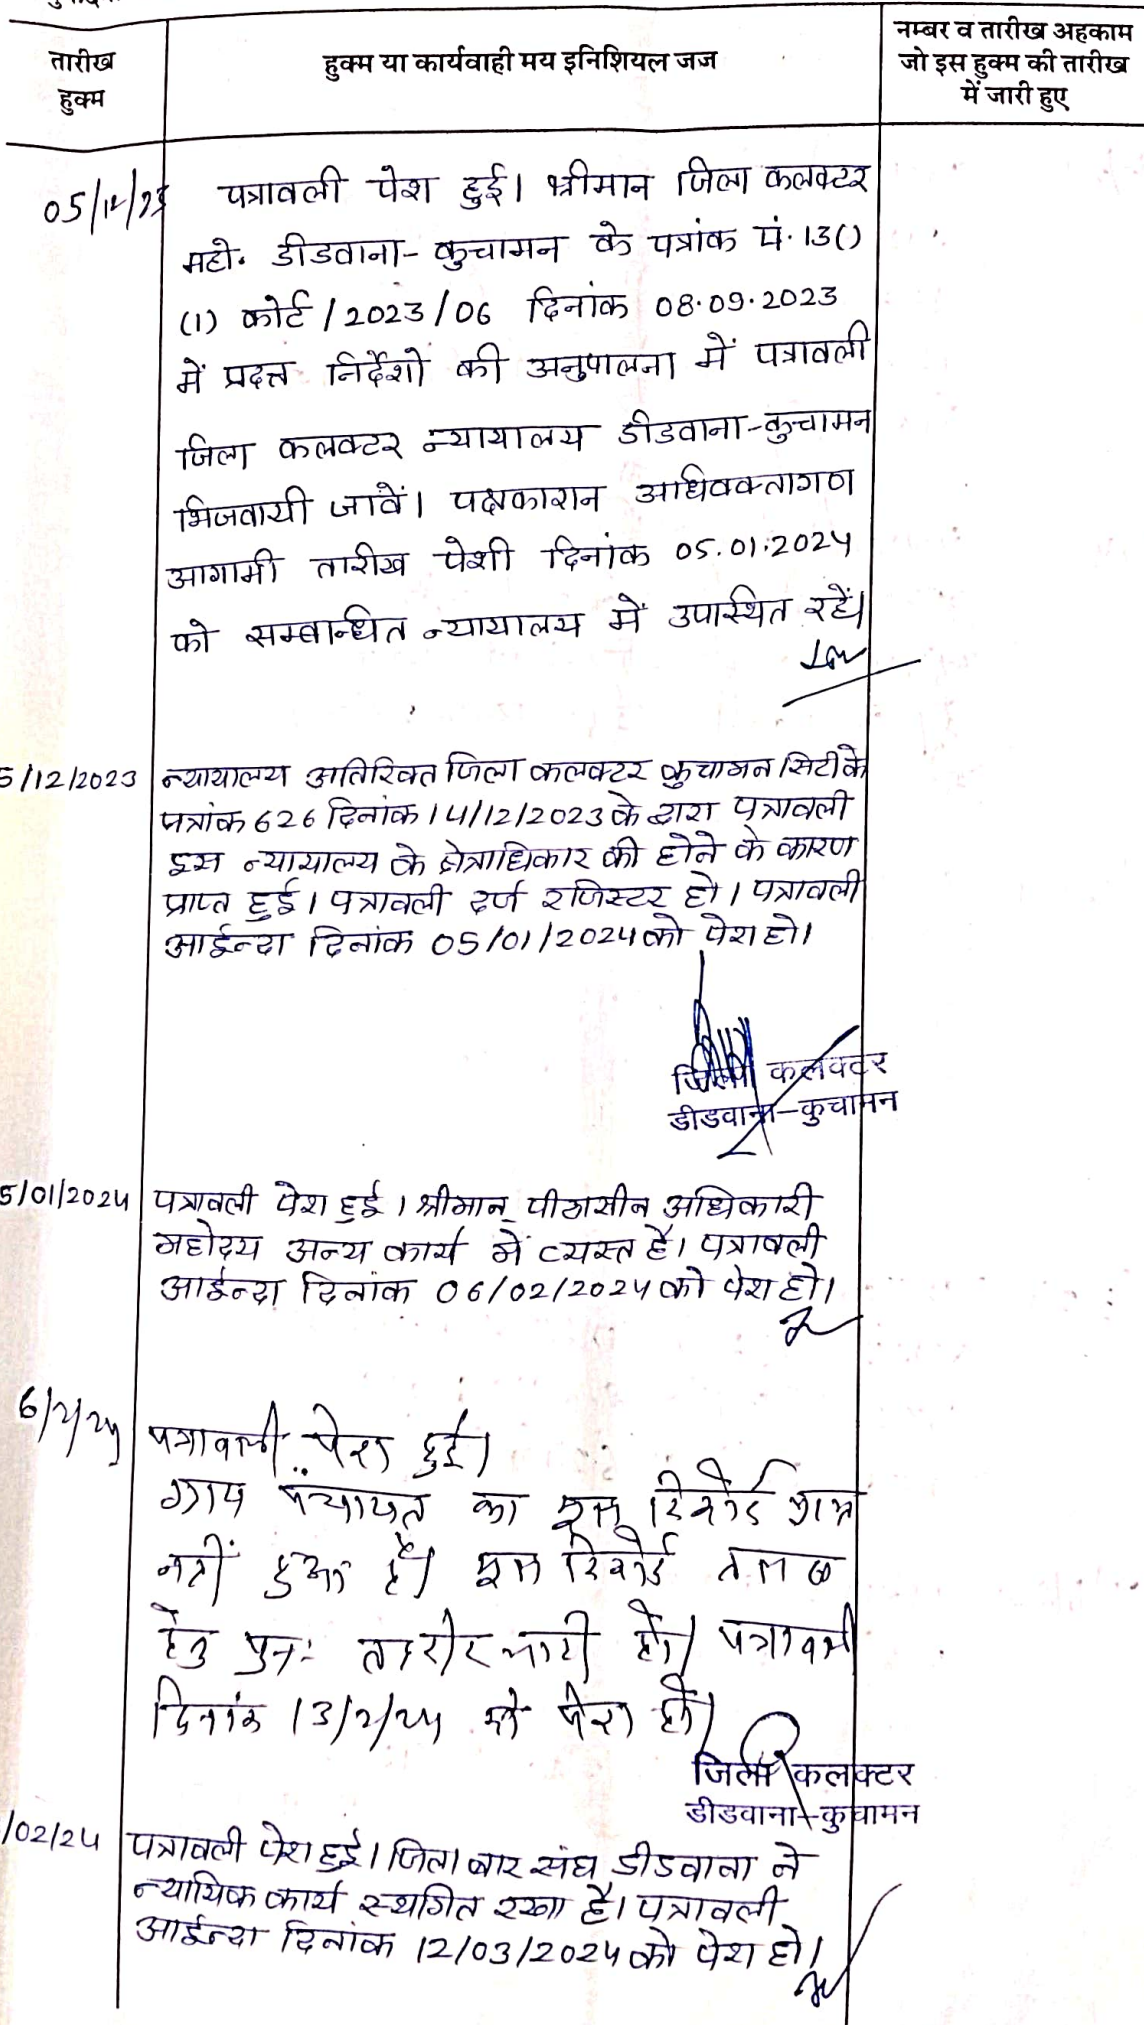 तारीख
हुक्म
हुक्म या कार्यवाही मय इनिशियल जज
नम्बर व तारीख अहकाम
जो इस हुक्म की तारीख
में जारी हुए
05/12/23
पत्रावली पेश हुई। श्रीमान जिला कलक्टर
महो. डीडवाना-कुचामन के पत्रांक पं. 13()
(1) कोर्ट/2023/06 दिनांक 08.09.2023
में प्रदत्त निर्देशो की अनुपालना में पत्रावली
जिला कलक्टर न्यायालय डीडवाना-कुचामन
भिजवायी जावें। पक्षकारान अधिवक्तागण
आगामी तारीख पेशी दिनांक 05.01.2024
को सम्बन्धित न्यायालय में उपस्थित रहें।
5/12/2023
न्यायालय अतिरिक्त जिला कलक्टर कुचामन सिटी के
पत्रांक 626 दिनांक 14/12/2023 के द्वारा पत्रावली
इस न्यायालय के क्षेत्राधिकार की होने के कारण
प्राप्त हुई। पत्रावली दर्ज रजिस्टर हो। पत्रावली
आईन्दा दिनांक 05/01/2024 को पेश हो।
जिला कलक्टर
डीडवाना-कुचामन
5/01/2024
पत्रावली पेश हुई। श्रीमान् पीठासीन अधिकारी
महोदय अन्य कार्य में व्यस्त है। पत्रावली
आईन्दा दिनांक 06/02/2024 को पेश हो।
6/2/24
पत्रावली पेश हुई।
ग्राम पंचायत का मूल रिकोर्ड प्राप्त
नहीं हुआ है। मूल रिकोर्ड तलब
हेतु पुनः तहरीर जारी हो। पत्रावली
दिनांक 13/2/24 को पेश हो।
जिला कलक्टर
डीडवाना-कुचामन
/02/24
पत्रावली पेश हुई। जिला बार संघ डीडवाना ने
न्यायिक कार्य स्थगित रखा है। पत्रावली
आईन्दा दिनांक 12/03/2024 को पेश हो।